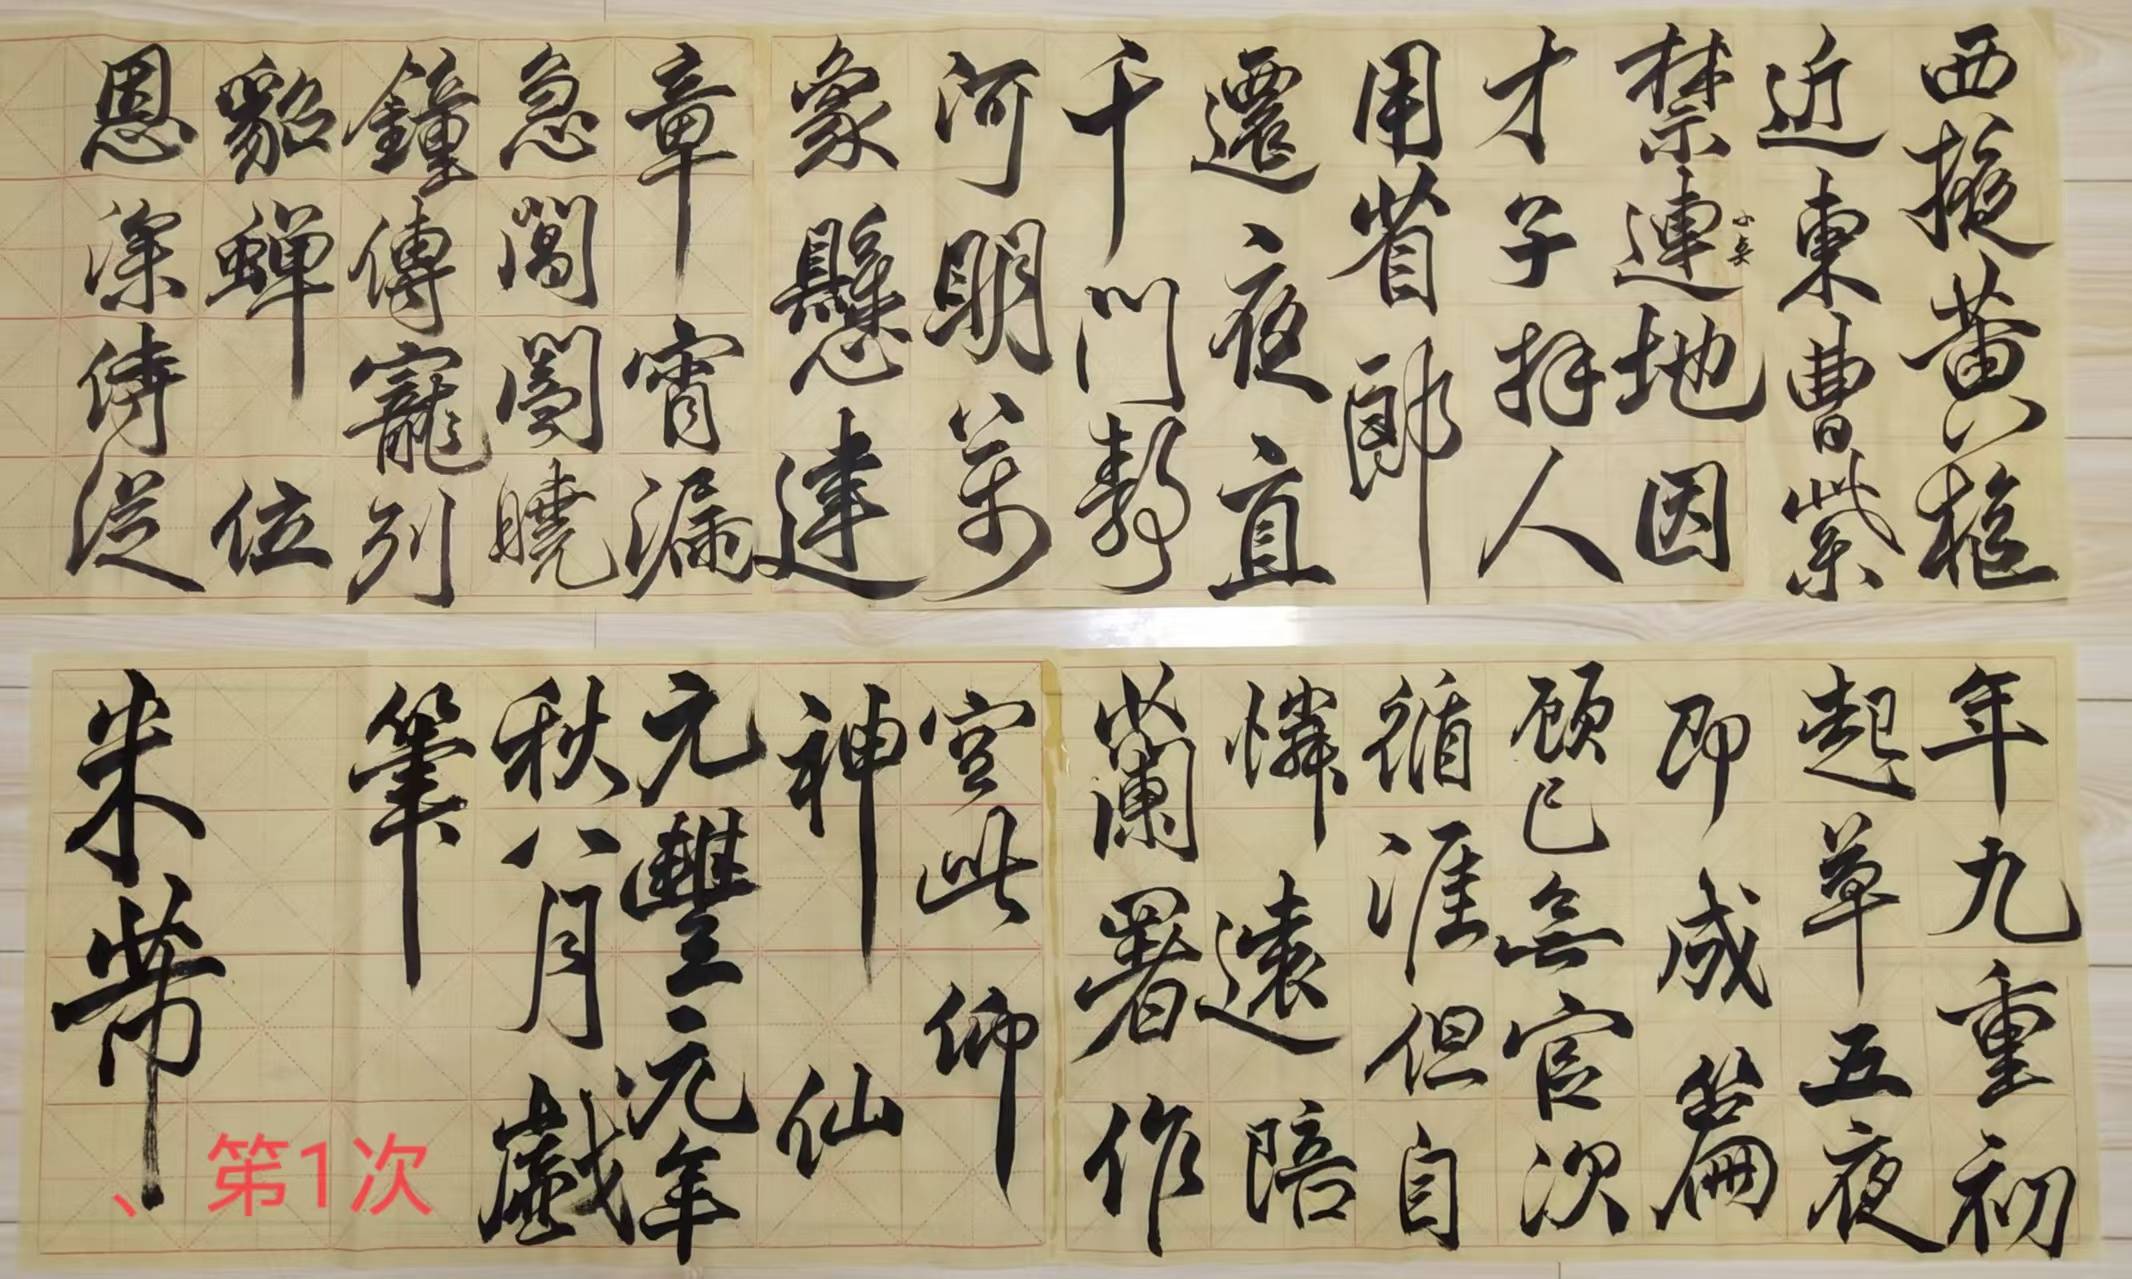 西掖黄樞
近東曹紫
禁連地因
才子拜人
用省郎
還夜直
千門静
河明萬
象懸建
章宵漏
急閶闔曉
鐘傳寵列
貂蟬位
恩深侍從
年九重初
起草五夜
即成篇
顧已無官次
循涯但自
憐遠陪
蘭署作
空此仰
神仙
元豐元年
秋八月戲
筆
米芾
、笫1次